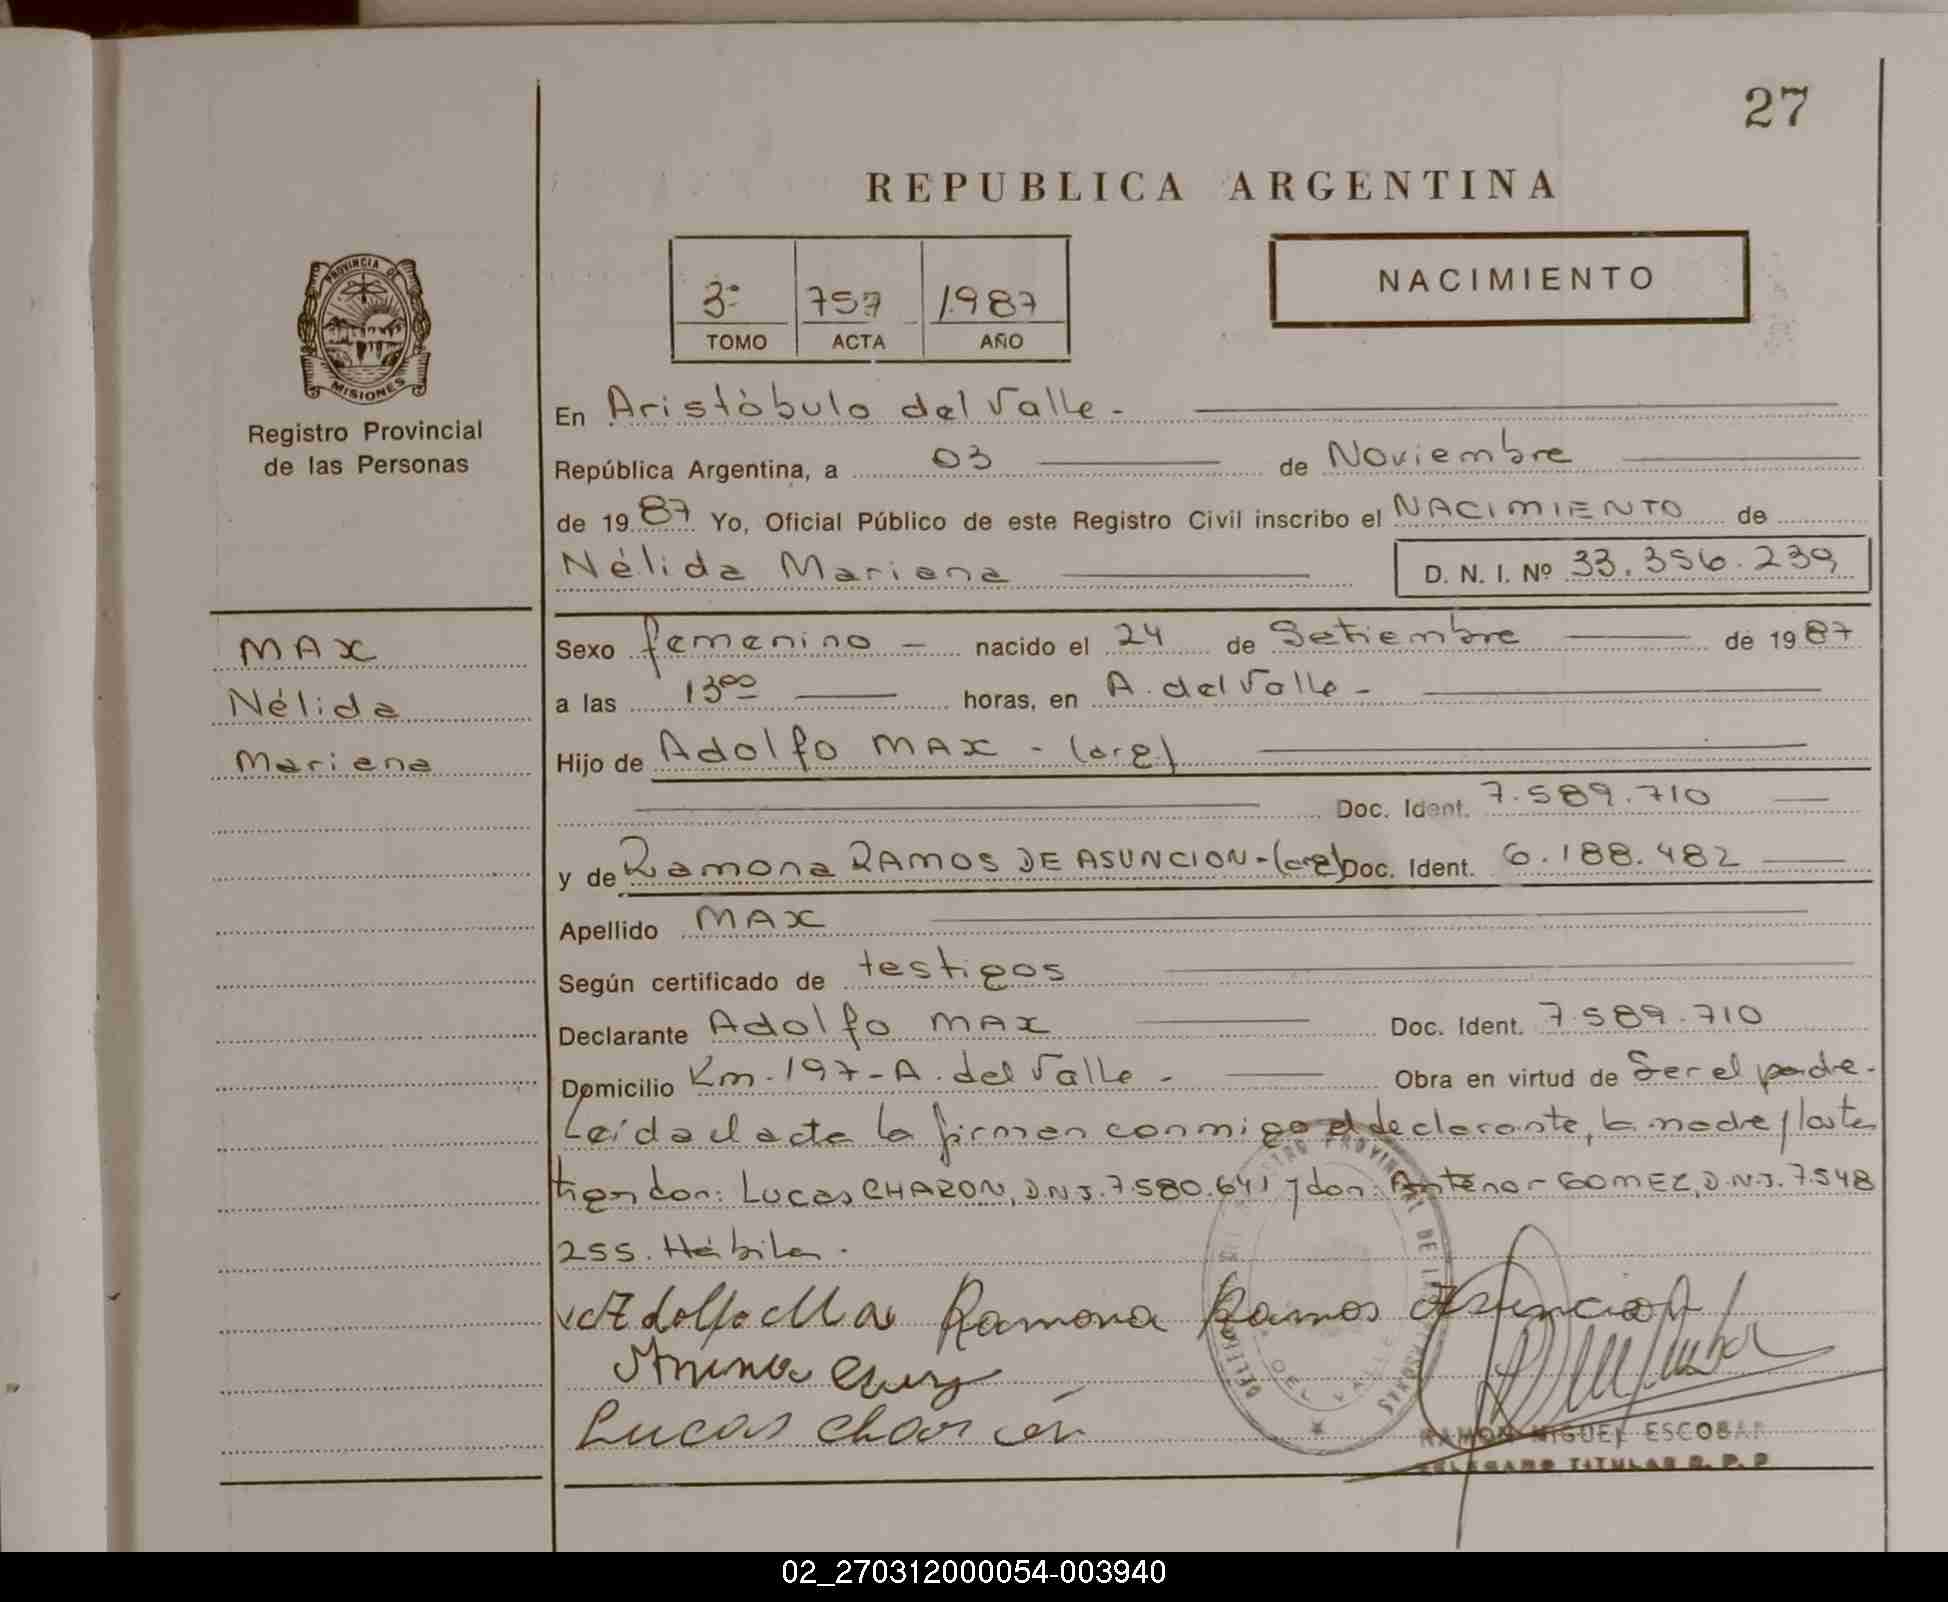 27
REPUBLICA ARGENTINA
3º 757 1.987
TOMO ACTA AÑO
NACIMIENTO
PROVINCIA DE
MISIONES
Registro Provincial
de las Personas
MAX
Nélida
Mariana
En Aristóbulo del Valle-
República Argentina, a 03 de Noviembre
de 1987 Yo, Oficial Público de este Registro Civil inscribo el NACIMIENTO de
Nélida Mariana D. N. I. Nº 33.356.239
Sexo femenino - nacido el 24 de Setiembre de 1987
a las 13⁰⁰ horas, en A. del Valle-
Hijo de Adolfo MAX - (arg)
Doc. Ident. 7.589.710
y de Ramona RAMOS DE ASUNCION-(arg) Doc. Ident. 6.188.482
Apellido MAX
Según certificado de testigos
Declarante Adolfo MAX Doc. Ident. 7.589.710
Domicilio Km-197-A. del Valle- Obra en virtud de Ser el padre-
Leída el acta la firman conmigo el declarante, la madre y los tes
tigos don: Lucas CHARON, D.N.I. 7.580.641 y don: Antenor GOMEZ, D.N.I. 7.548
255. Hábiles.
Adolfo Max Ramona Ramos Asuncion
Lucas
RAMON MIGUEL ESCOBAR
DELEGADO TITULAR R. P. P
DEL VALLE
02_270312000054-003940